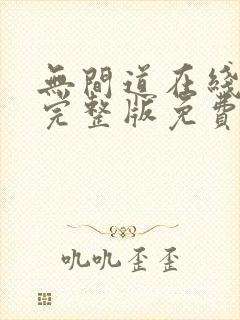 無間道在綫
完整版免費
吼吼歪歪